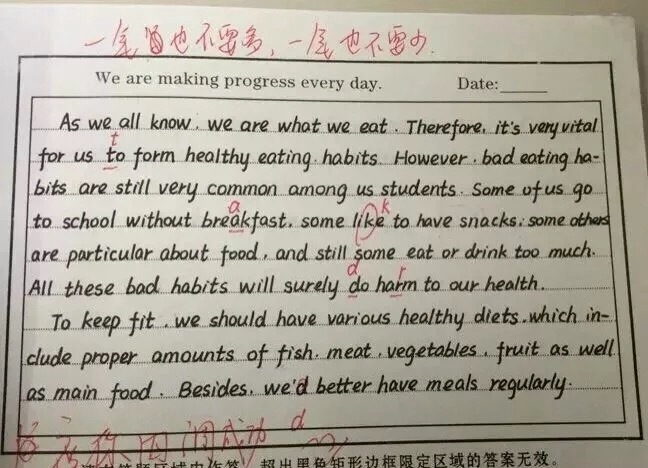 一笔也不要多，一笔也不要少.
We are making progress every day. Date:
As we all know, we are what we eat. Therefore, it's very vital
t
for us to form healthy eating habits. However, bad eating ha-
bits are still very common among us students. Some of us go
a k
to school without breakfast, some like to have snacks, some others
are particular about food, and still some eat or drink too much.
d r
All these bad habits will surely do harm to our health.
To keep fit, we should have various healthy diets, which in-
clude proper amounts of fish, meat, vegetables, fruit as well
as main food. Besides, we'd better have meals regularly.
成功 d
超出黑色矩形边框限定区域的答案无效。